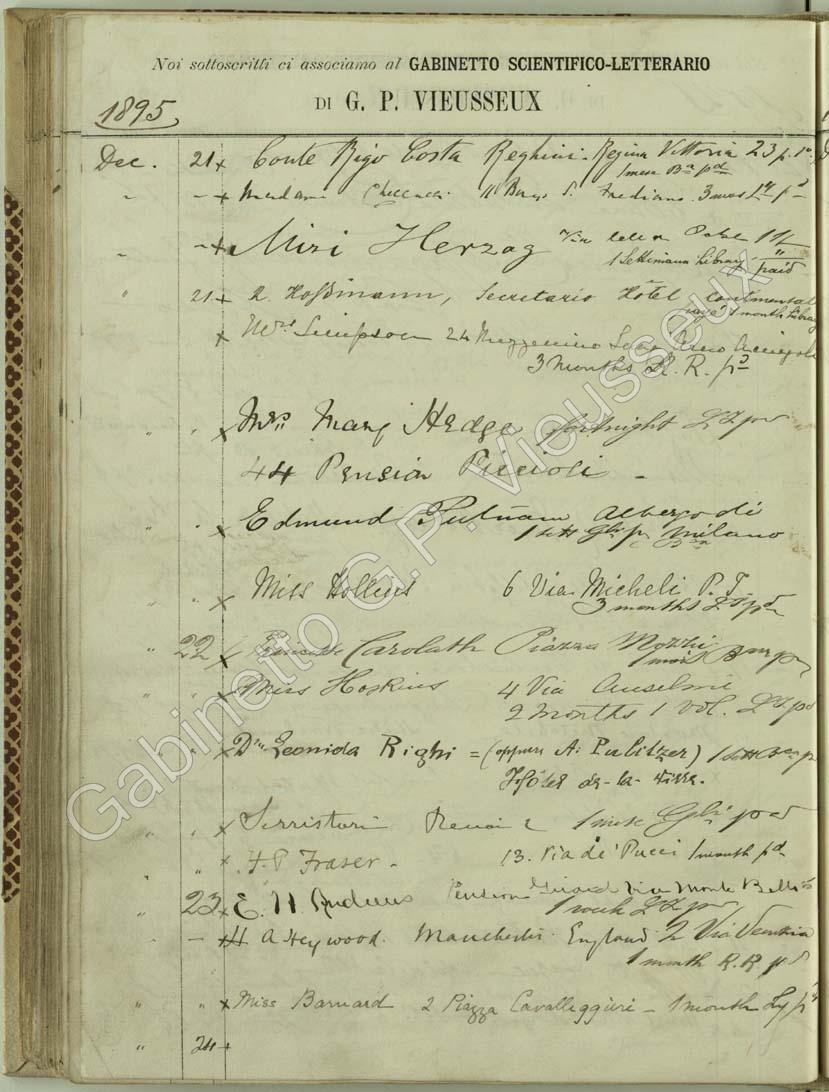 Noi sottoscritti ci associamo al GABINETTO SCIENTIFICO-LETTERARIO
DI G. P. VIEUSSEUX
1895
Dec. 21 x Conte Rigo Costa Reghini. Regina Vittoria 23 p. 1o
1 mese Bn pd
" - x Madame 11 Borgo S. Frediano. 3 mos Ly pd
" - x Mizi Herzog Via
1 Settimana Library paid
" 21 x R. Hoffmann, Secretario Hôtel Continental
1 month Library
x Mrs Simpson 24 Mezzanino Lung Arno Acciajoli
3 months R. R. pd
" " x Mrs Mary Hedge fortnight LY pd
44 Pension Piccioli -
" " x Edmund Putnam Albergo di
1 sett Gbi p Milano
" " x Miss Hollins 6 Via Micheli P. T.
3 months LY pd
" 22 x Carolath Piazza Mozzi
1 mois B pd
" " x Miss Hoskins 4 Via Anselmi
2 months 1 vol. LY pd
" " x Leonida Righi = (oppure A. Pulitzer) 1 sett
Hôtel de-la-
" " x Serristori Renai 2 1 mese Gbi pd
" " x H P Fraser - 13. Via de' Pucci 1 month pd
" 23 x E. H. Andrews Pension Girard Via Monte Bello
1 week LY pd
- x H A Heywood. Manchester. England. 2 Via Venezia
1 month R.R pd
" " x Miss Barnard 2 Piazza Cavalleggieri - 1 month Ly pd
" 24 x
Gabinetto G.P. Vieusseux